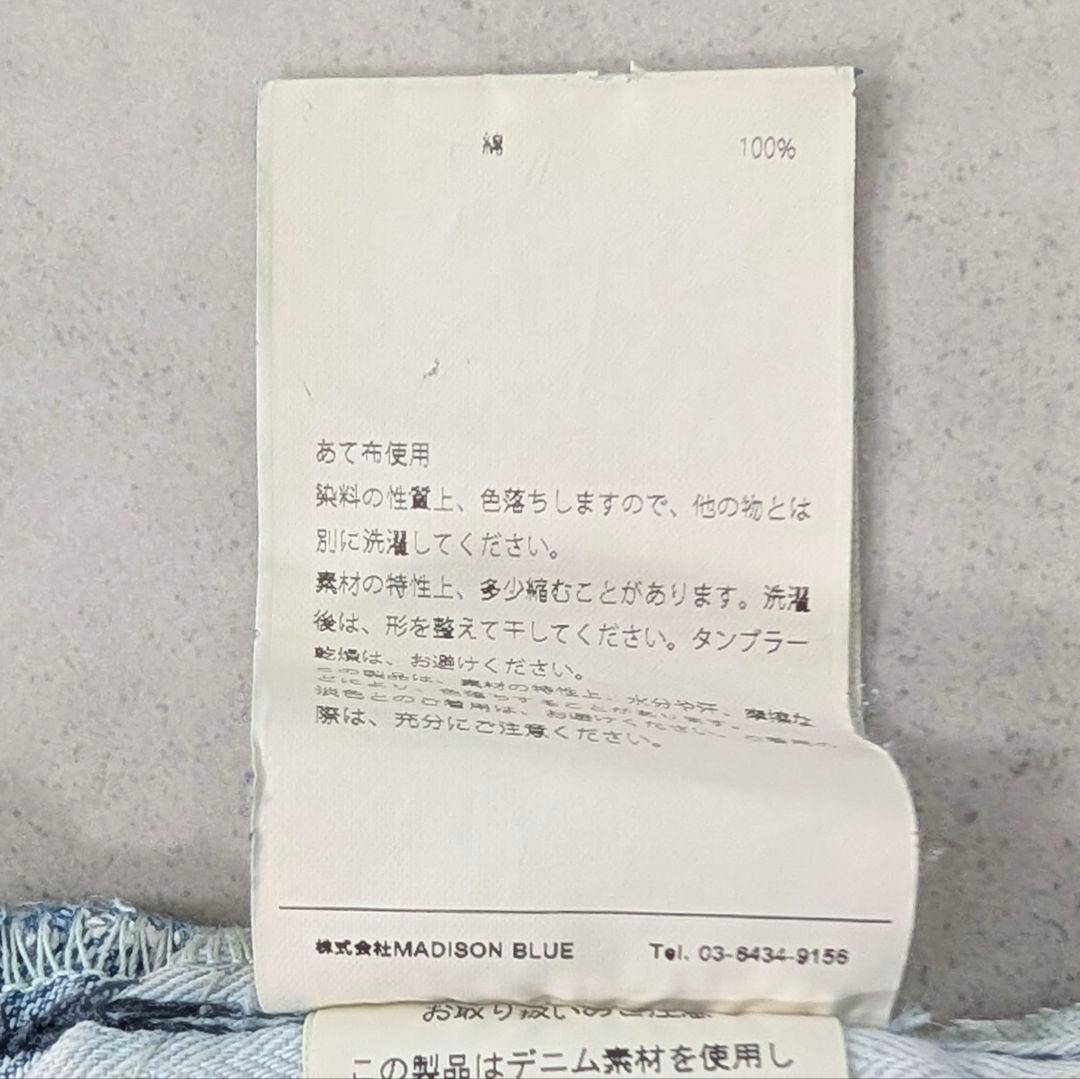 綿 100%
あて布使用
染料の性質上、色落ちしますので、他の物とは
別に洗濯してください。
素材の特性上、多少縮むことがあります。洗濯
後は、形を整えて干してください。タンブラー
乾燥は、お避けください。
この製品は、素材の特性上、水分や汗、摩擦な
どによって、色落ちすることがあります。
淡色とのご着用は、お避けください。ご着用の
際は、充分にご注意ください。
株式会社MADISON BLUE Tel. 03-6434-9156
お取り扱いのご注意
この製品はデニム素材を使用し